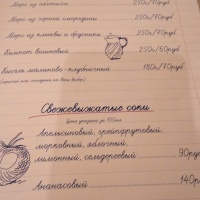 Морс из облепихи 250л/70руб
Морс из черной смородины 250л/70руб
Морс из клюквы и брусники 250л/70руб
Компот вишневый 250л/60руб
Кисель малиново-клубничный 180л/70руб
Свежевыжатые соки
Цена указана за 100мл
Апельсиновый, грейпфрутовый,
морковный, яблочный,
лимонный, сельдереевый 90руб
Ананасовый 140р